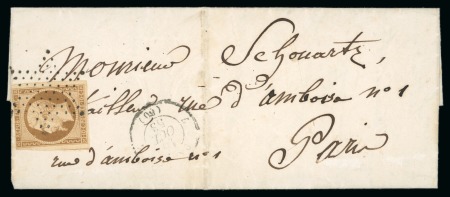 Monsieur Schouartz,
tailleur rue d'amboise n° 1
rue d'amboise n° 1 Paris